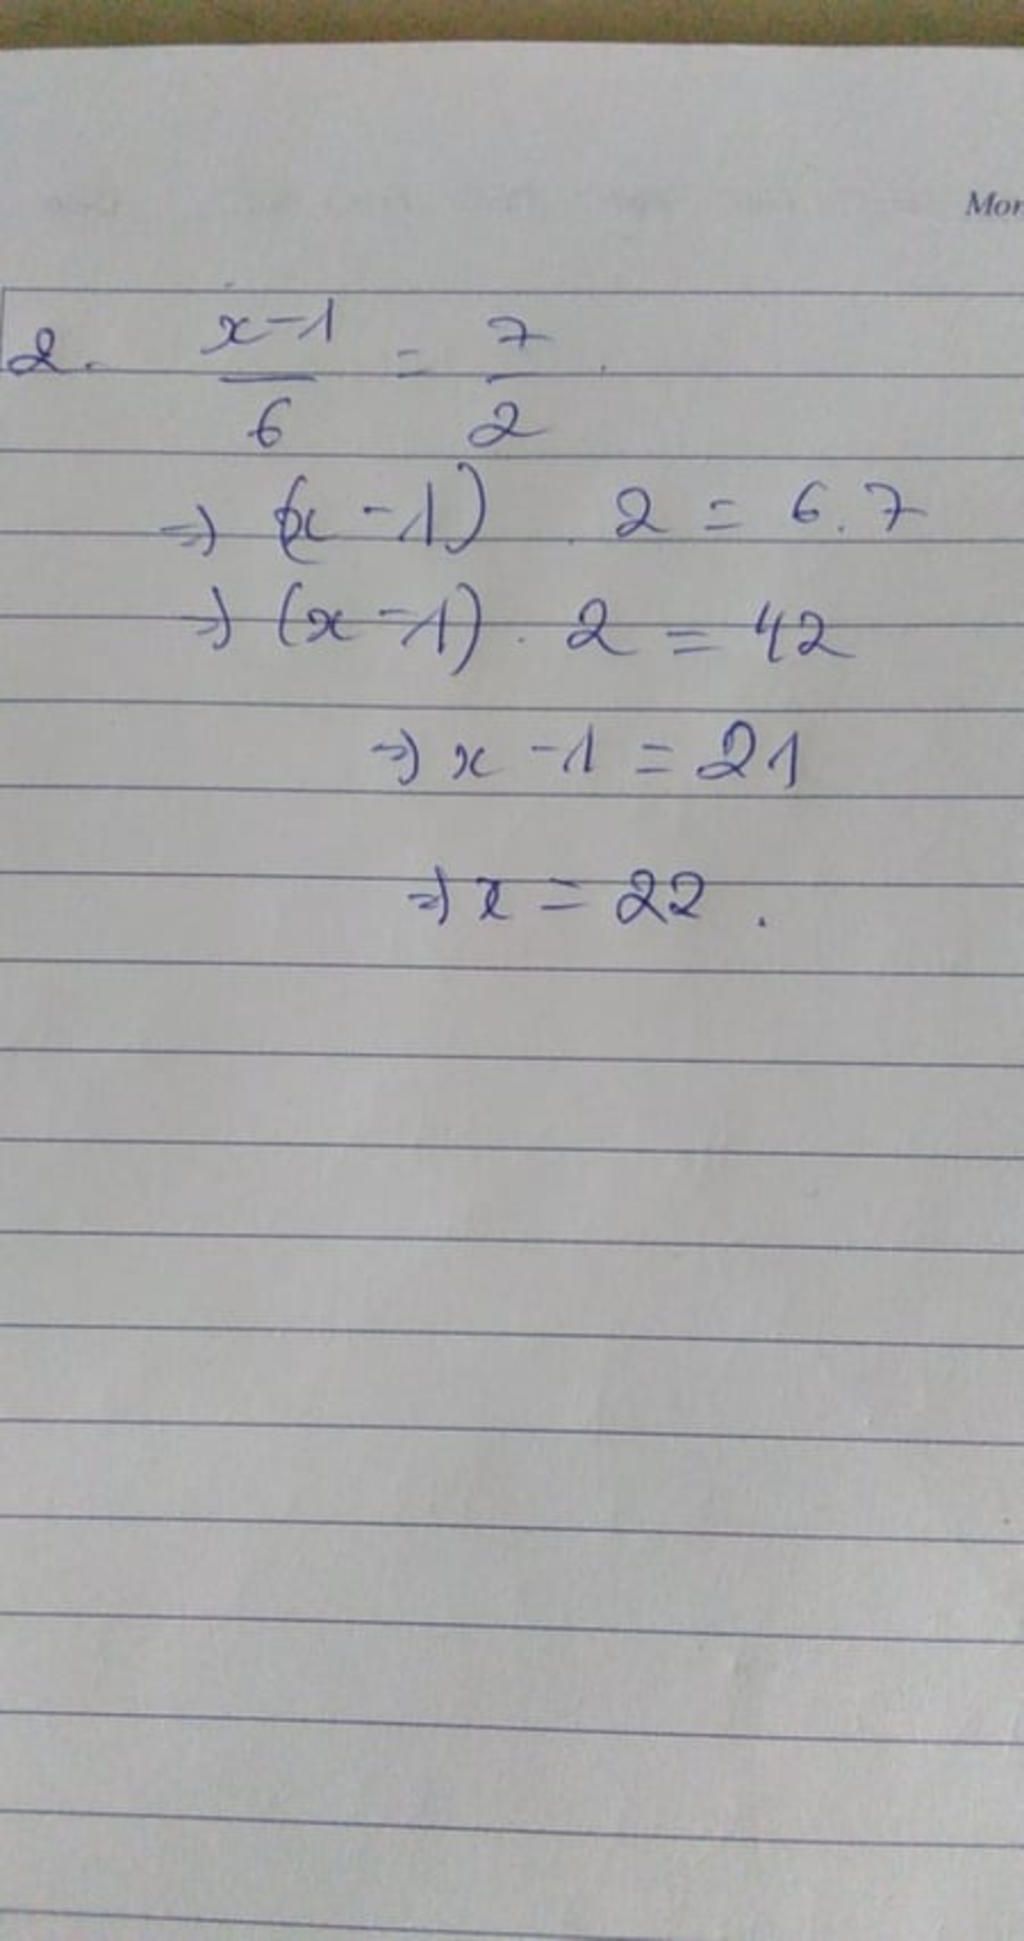 Mon
2. x-1/6 = 7/2.
=> (x-1) . 2 = 6.7
=> (x-1) . 2 = 42
=> x-1 = 21
=> x = 22.